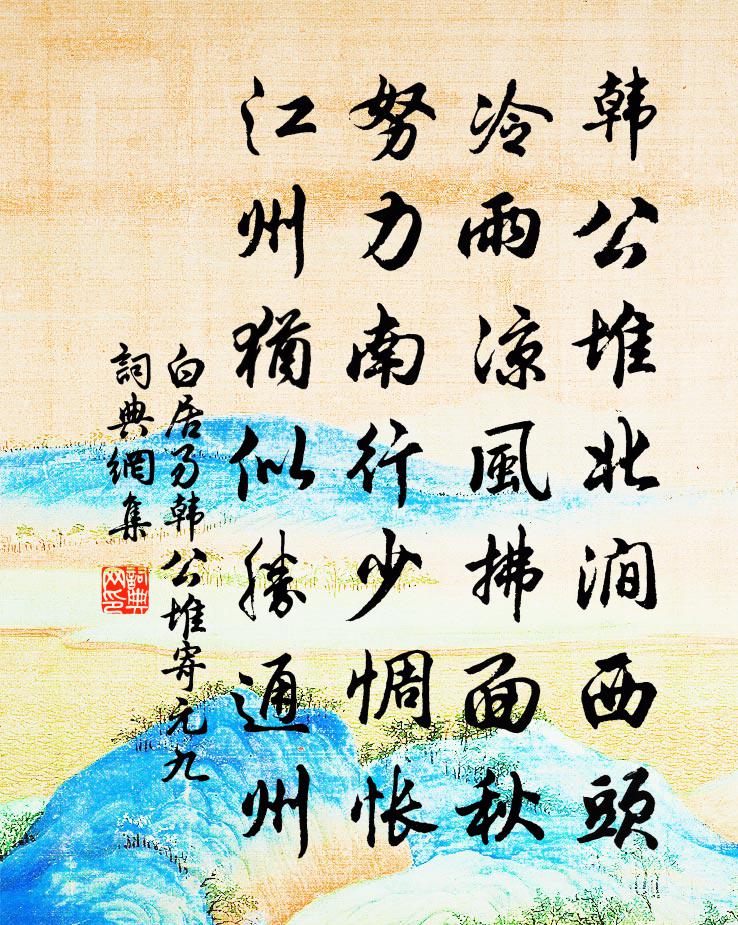 韩公堆北涧西頭
冷雨凉風拂面秋
努力南行少惆怅
江州猶似勝通州
白居易韩公堆寄元九
詞典網集
詞典網印